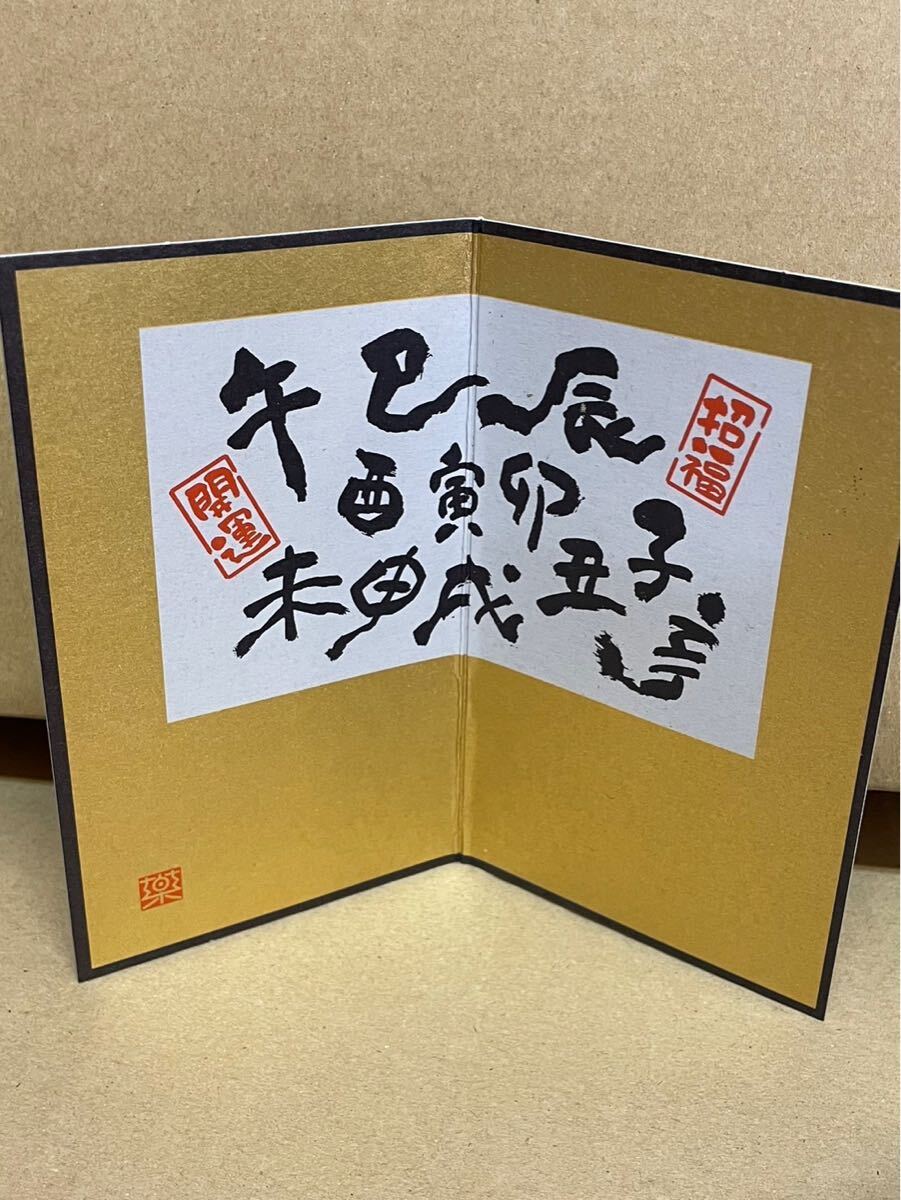 招福
午 巳 辰
酉 寅 卯
未 申 戌 丑 子
亥
開運